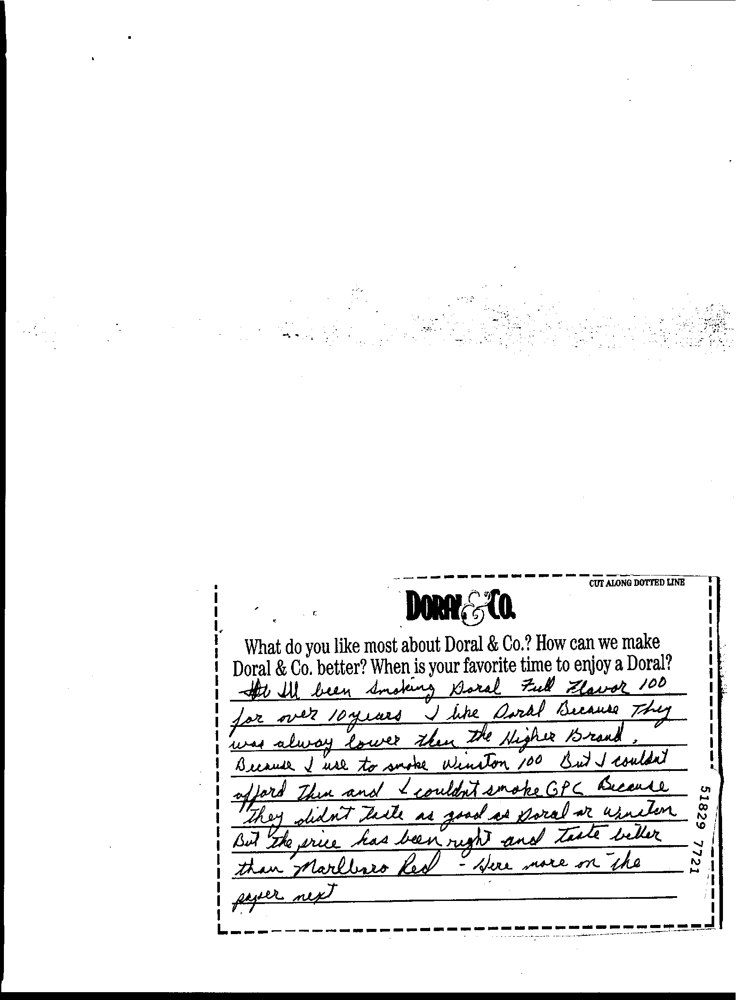 CUT ALONG DOTTED LINE
DORAL & CO.
What do you like most about Doral & Co.? How can we make
Doral & Co. better? When is your favorite time to enjoy a Doral?
been Smoking Doral Full Flavor 100
for over 10 years I like Doral Because They
was alway lower then the Higher Brand,
Because I use to smoke Winston 100 But I couldnt
afford Them and I couldnt smoke GPC Because
They didnt Taste as good as Doral or winston
But the price has been right and taste better
than Marlboro Red - Here more on the
paper next
51829 7721